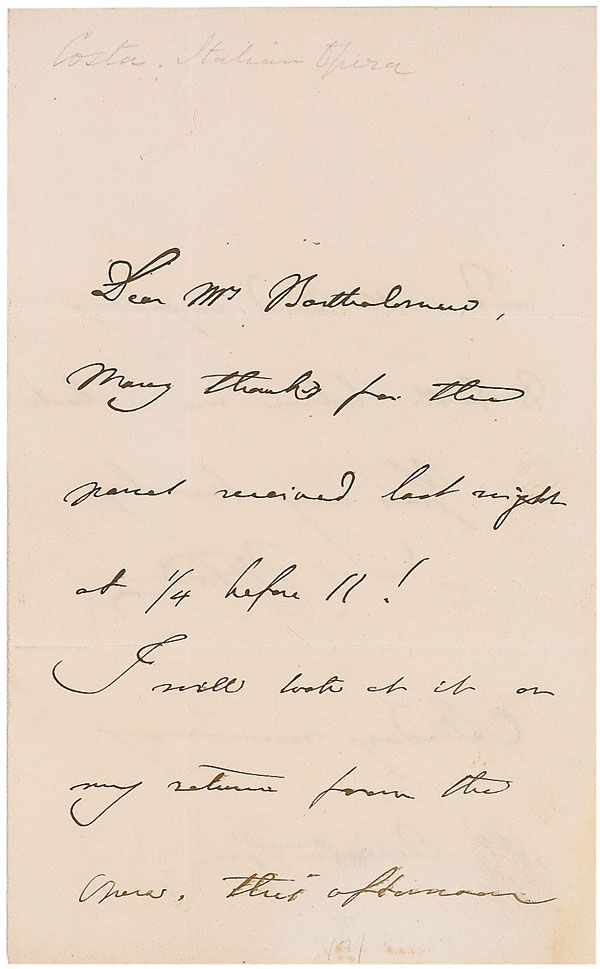 Costa. Italian Opera
Dear Mr Bartholomew,
Many thanks for the
parcel received last night
at 1/4 before 11!
I will look at it on
my return from the
Opera. this afternoon